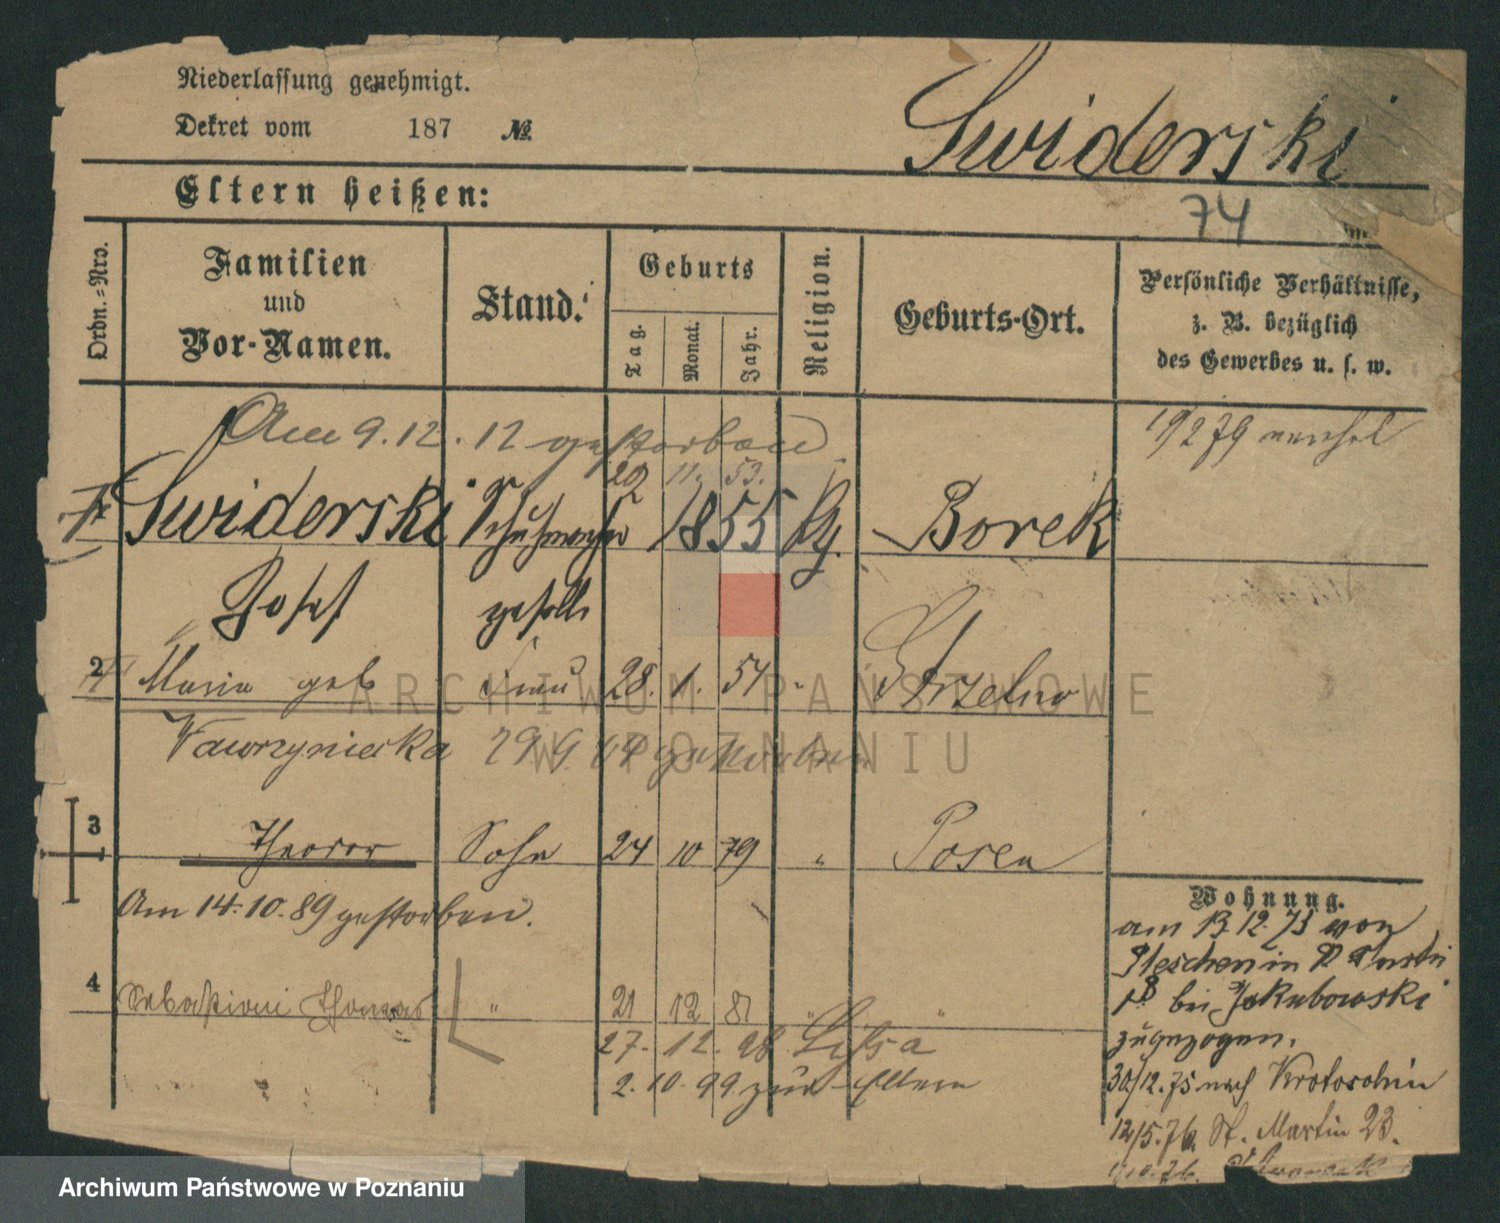 Niederlassung genehmigt.
Dekret vom 187 №
Swiderski
Eltern heißen:
74
Ordn.=Nro.
Familien
und
Vor-Namen.
Stand.
Geburts
Tag.
Monat.
Jahr.
Religion.
Geburts-Ort.
Persönliche Verhältnisse,
z. B. bezüglich
des Gewerbes u. s. w.
Am 9.12.12 gestorben
19/2 79
29 11. 53.
Swiderski Schuhmacher 1855 Borek
Josef geselle
2 Maria geb Frau 28. 1. 54 " Strzelno
Wawrzyniecka 29.9. gestorben
3 Theodor Sohn 24 10 79 " Posen
Am 14.10.89 gestorben.
4 Sebastian Thomas " 21 12 81 " "
27. 12. 98 Lissa
2. 10. 99 zur Eltern
Wohnung.
am 13.12.75 von
Pleschen in St Martin
18 bei Jakubowski
zugezogen.
30/12.75 nach Krotoschin
12/5.76. St. Martin 23.
ARCHIWUM PAŃSTWOWE
W POZNANIU
Archiwum Państwowe w Poznaniu